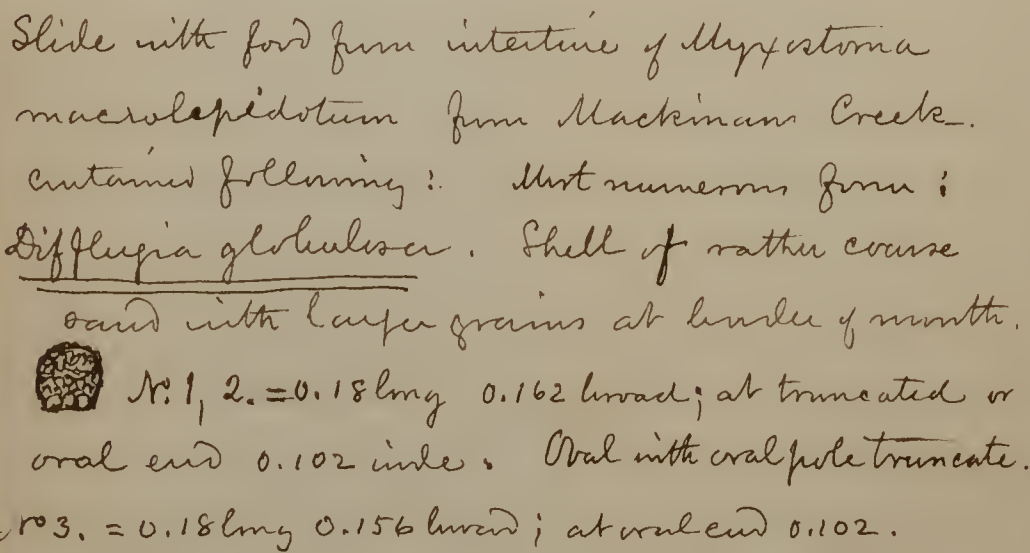 Slide with food from intestine of Myxostoma
macrolepidotum from Mackinaw Creek.
contained following: Most numerous form:
Difflugia globulosa. Shell of rather coarse
sand with larger grains at border of mouth.
No. 1, 2. = 0.18 long 0.162 broad; at truncated or
oral end 0.102 wide. Oval with oral pole truncate.
No 3. = 0.18 long 0.156 broad; at oral end 0.102.